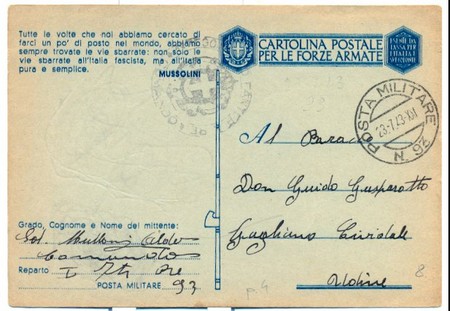 Tutte le volte che noi abbiamo cercato di
farci un po' di posto nel mondo, abbiamo
sempre trovate le vie sbarrate: non solo le
vie sbarrate all'Italia fascista, ma all'Italia
pura e semplice.
MUSSOLINI
CARTOLINA POSTALE
PER LE FORZE ARMATE
POSTA MILITARE
N. 93
Al
Don Guido Gasparotto
Gagliano Cividale
Udine
Grado, Cognome e Nome del mittente:
Sol.
Comando
Reparto
POSTA MILITARE 93
p. 4
8